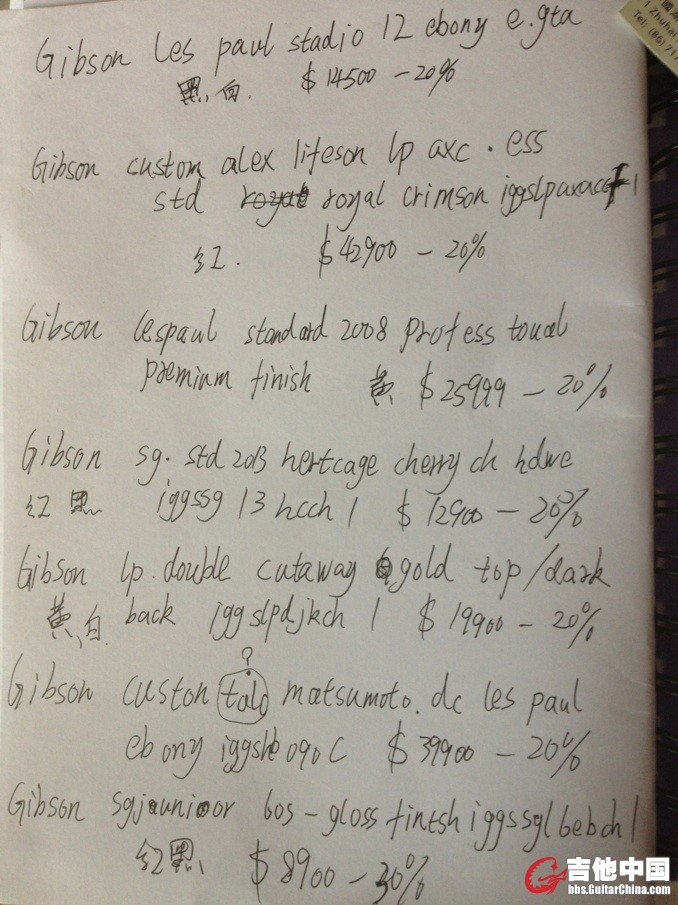 Gibson les paul stadio 12 ebony e.gta
黑,白. $14500 -20%
Gibson custom alex lifeson lp axc . ess
std royal crimson
红. $42900 - 20%
Gibson lespaul standard 2008 protess toual
premium finish 黄 $25999 - 20%
Gibson sg. std 2013 hertcage cherry ch hdwe
红 黑 iggssg 13 hcch 1 $12900 - 20%
Gibson lp.double cutaway gold top/dark
黄,白 back iggslpdjkch 1 $19900 - 20%
?
Gibson custon talo matsumoto.dc les paul
ebony $39900 - 20%
Gibson sgjaunioor 60s-gloss fintsh iggssgl6ebch1
红黑 $8900 - 30%
1 Zhuhai
Tel: (86)
吉他中国
bbs.GuitarChina.com